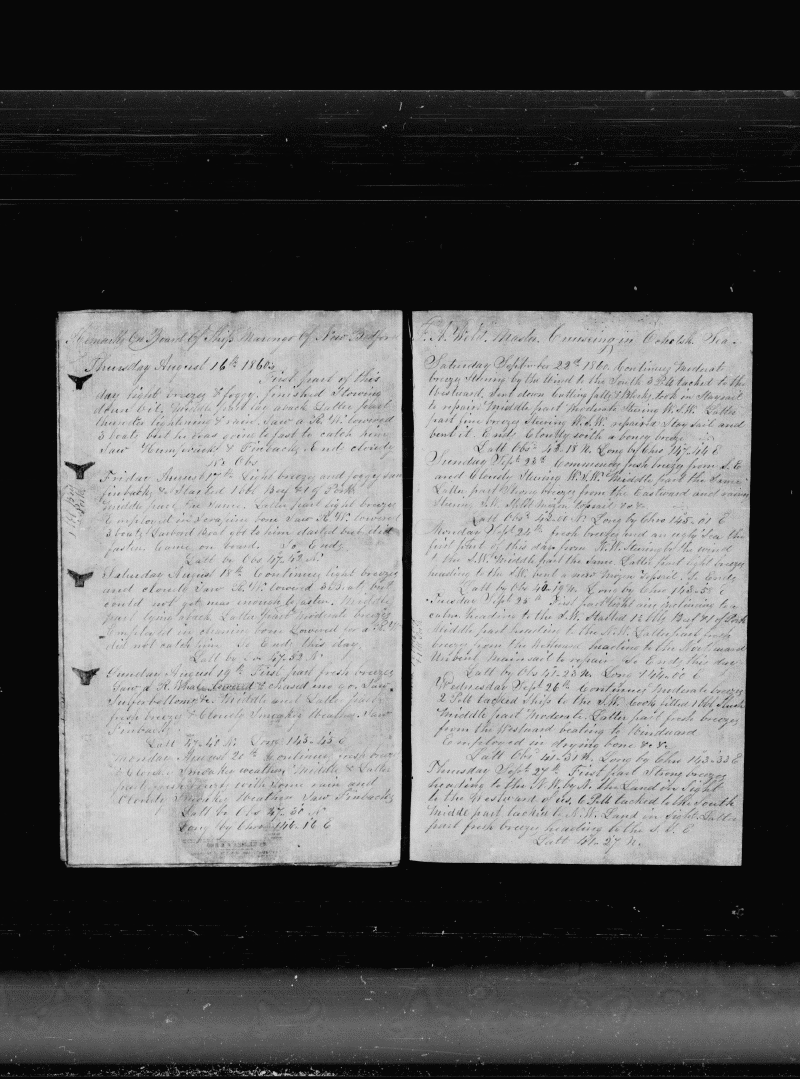 Remarks On Board Of Ship Marengo Of New Bedford
Thursday August 16th 1860
First part of this
day light breezes & foggy. finished Stowing
down Oil. Middle part lay aback Latter part
thunder lightening & rain. Saw a R. W. lowered
3 boats but he was going to fast to catch him
Saw Humpbacks & Finbacks Ends cloudy
No Obs
Friday August 17th Light breezes and foggy saw
finbacks & Started 1 bbl Beef & 1 of Pork
middle part the same. Latter part light breezes
Employed in Scraping bone Saw R. W. lowered
3 boats Larboard Boat got to him darted but did not
fasten. Came on board. So Ends
Latt by Obs 47-42 N.
Saturday August 18th Continues light breezes
and cloudy Saw R. W. lowered 3 Bs. but
could not get near enough to fasten. Middle
part lying aback. Latter part Moderate breezes
Employed in cleaning bone Lowered for a R W
did not catch him So Ends this day.
Latt by Obs 47-52 N.
Sunday August 19th First part fresh breezes
Saw a R. Whale lowered & chased no go. Saw
Sulferbottoms. Middle and Latter parts
fresh breezes & Cloudy Smoky Weather. Saw
Finbacks
Latt 47-48 N. Long 145-45 E
Monday August 20th Continues fresh breezes
& Cloudy Smokey weather Middle & Latter
part with Some rain and
Cloudy Smokey Weather Saw Finbacks
Latt by Obs 47-30 N.
Long by Chro 146-16 E
Master Cruising in Ochotsk Sea
Saturday September 22nd 1860. Continues Moderate
breezes Steering by the Wind to the South 3 P.M. tacked to the
Westward, took in Staysail
to repair Middle part Moderate Steering W.S.W. Latter
part fine breezes Steering W.S.W. repaired Staysail and
bent it. Ends Cloudy with a breeze
Latt Obs 43-18 N. Long by Chro 147-44 E
Sunday Sept 23rd Commences fresh breezes from S. E.
and Cloudy Steering W.S.W. Middle part the Same
Latter part Strong breezes from the Eastward and rainy
Steering
Latt Obs N. Long by Chro 145-01 E
Monday Sept 24th fresh breezes and an ugly Sea the
first part of this day from N.W. Steering by the wind
to the S.W. Middle part the Same Latter part light breezes
heading to the S.W. So Ends
Latt by Obs N. Long by Chro E
Tuesday Sept 25th First part light airs inclining to a
calm heading to the S.W. Started 1 bbl Beef & 1 of Pork
Middle part heading to the N.W. Latter part fresh
breezes from the Westward heading to the Northward
Unbent Mainsail to repair So Ends this day
Latt by Obs 41-23 N. Long 144-00 E
Wednesday Sept 26th Continues Moderate breezes
2 P.M. tacked Ships to the S.W. Cook filled 1 bbl Slush
Middle part Moderate. Latter part fresh breezes
from the Westward beating to Windward
Employed in drying bone &c &c.
Latt Obs 41-31 N. Long by Chro 143-33 E
Thursday Sept 27th First part Strong breezes
heading to the N.W. by N. the Land in Sight
to the Westward of us. 6 P.M. tacked to the South
Middle part tacked to N.W. Land in Sight. Latter
part fresh breezes heading to the S. S. E
Latt 41-27 N.